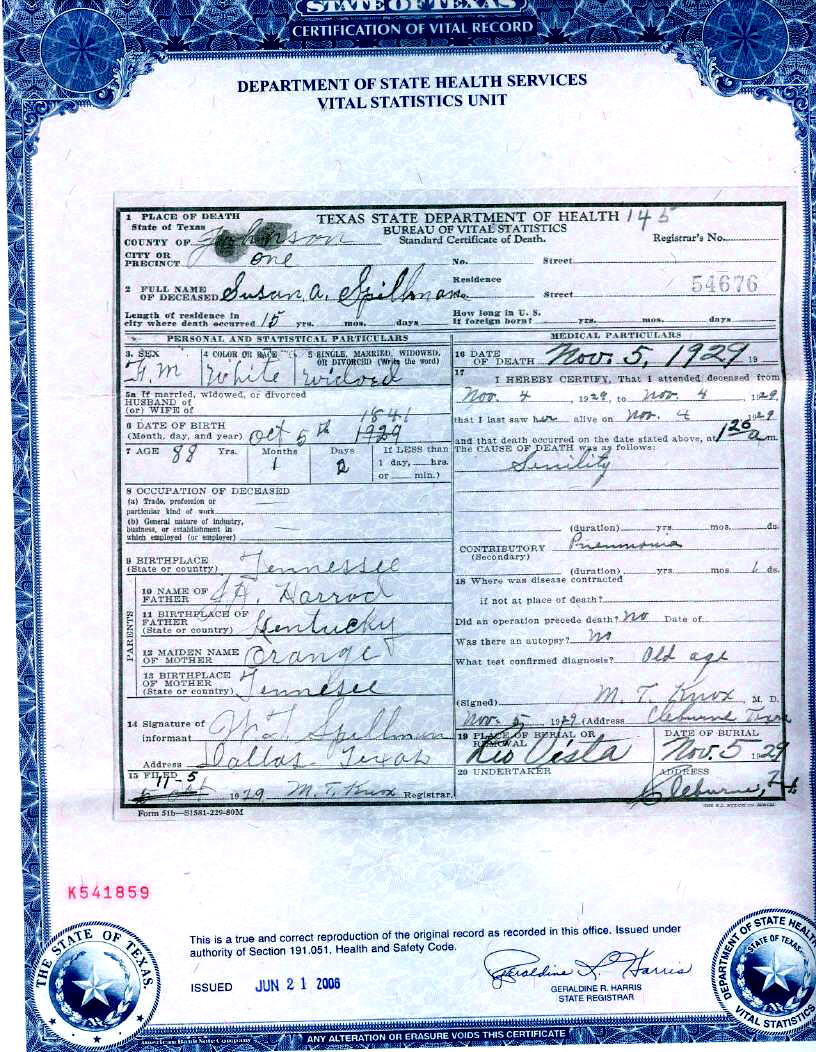 STATE OF TEXAS
CERTIFICATION OF VITAL RECORD
DEPARTMENT OF STATE HEALTH SERVICES
VITAL STATISTICS UNIT
1 PLACE OF DEATH
State of Texas
COUNTY OF Johnson
CITY OR PRECINCT one
TEXAS STATE DEPARTMENT OF HEALTH 145
BUREAU OF VITAL STATISTICS
Standard Certificate of Death.
Registrar's No.
No. Street
2 FULL NAME OF DECEASED Susan A. Spillman
Residence No. Street
54676
Length of residence in city where death occurred 15 yrs. mos. days
How long in U. S. if foreign born? yrs. mos. days
PERSONAL AND STATISTICAL PARTICULARS
3. SEX F.M
4 COLOR OR RACE White
5 SINGLE, MARRIED, WIDOWED, OR DIVORCED (Write the word) widoed
5a If married, widowed, or divorced
HUSBAND of
(or) WIFE of
6 DATE OF BIRTH
(Month, day, and year) Oct 5th 1841 1929
7 AGE 88 Yrs. Months 1 Days 2 If LESS than 1 day, hrs. or min.)
8 OCCUPATION OF DECEASED
(a) Trade, profession or
particular kind of work
(b) General nature of industry,
business, or establishment in
which employed (or employer)
9 BIRTHPLACE
(State or country) Tennessee
PARENTS
10 NAME OF FATHER J.A. Harrod
11 BIRTHPLACE OF FATHER
(State or country) Kentucky
12 MAIDEN NAME OF MOTHER Orange
13 BIRTHPLACE OF MOTHER
(State or country) Tennesee
14 Signature of informant Spillman
Address Dallas Texas
15 FILED 11-5 1929 M. T. Knox Registrar.
MEDICAL PARTICULARS
16 DATE OF DEATH Nov. 5, 1929 19
17
I HEREBY CERTIFY, That I attended deceased from
Nov. 4, 1929, to Nov. 4, 1929,
that I last saw her alive on Nov. 4 1929
and that death occurred on the date stated above, at 1 25 a m.
The CAUSE OF DEATH was as follows:
Senility
(duration) yrs mos. ds.
CONTRIBUTORY Pneumonia
(Secondary)
(duration) yrs mos. 6 ds.
18 Where was disease contracted
if not at place of death?
Did an operation precede death? No Date of
Was there an autopsy? No
What test confirmed diagnosis? Old age
(Signed) M. T. Knox, M. D.
Nov. 5, 1929 (Address Cleburne Texas
19 PLACE OF BURIAL OR REMOVAL Rio Vista
DATE OF BURIAL Nov. 5 1929
20 UNDERTAKER
ADDRESS Cleburne,
Form 51b—S1581-229-80M
K541859
This is a true and correct reproduction of the original record as recorded in this office. Issued under
authority of Section 191.051, Health and Safety Code.
ISSUED JUN 21 2006
Geraldine R. Harris
GERALDINE R. HARRIS
STATE REGISTRAR
THE STATE OF TEXAS.
DEPARTMENT OF STATE HEALTH
STATE OF TEXAS
VITAL STATISTICS
American Bank Note Company
ANY ALTERATION OR ERASURE VOIDS THIS CERTIFICATE